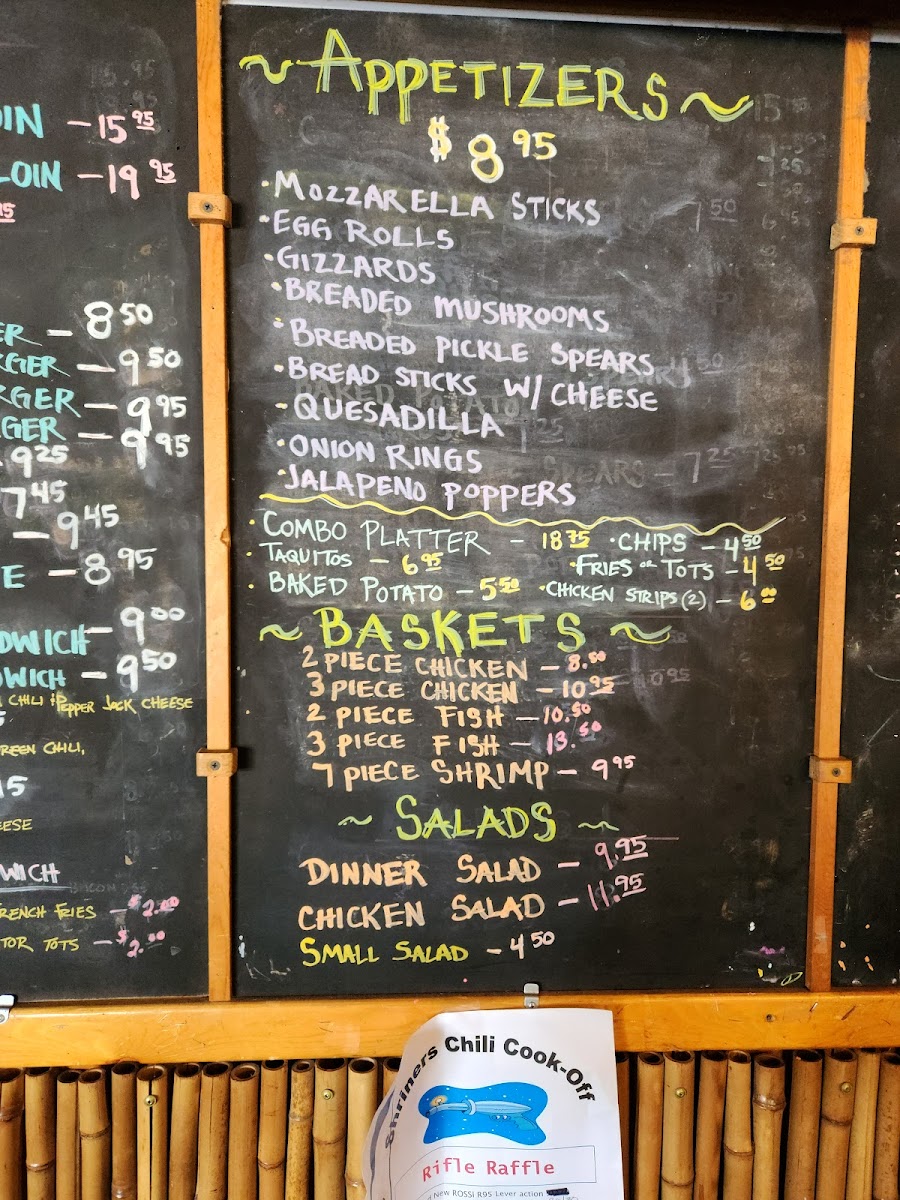 OIN - 15 95
LOIN - 19 95
15
ER - 8 50
RGER - 9 50
RGER - 9 95
GER - 9 95
- 9 25
7 45
- 9 45
E - 8 95
- 9 00
DWICH
WICH - 9 50
CHILI & PEPPER JACK CHEESE
REEN CHILI,
15
EESE
WICH
FRENCH FRIES - $2.00
TOR TOTS - $2.00
~ APPETIZERS ~
$8 95
• MOZZARELLA STICKS
• EGG ROLLS
• GIZZARDS
• BREADED MUSHROOMS
• BREADED PICKLE SPEARS
• BREAD STICKS W/ CHEESE
- QUESADILLA
• ONION RINGS
• JALAPENO POPPERS
• COMBO PLATTER - 18 75 • CHIPS - 4 50
• TAQUITOS - 6 95 • FRIES OR TOTS - 4 50
• BAKED POTATO - 5.50 • CHICKEN STRIPS (2) - 6 00
~ BASKETS ~
2 PIECE CHICKEN - 8.50
3 PIECE CHICKEN - 10 95
2 PIECE FISH - 10.50
3 PIECE FISH - 13.50
7 PIECE SHRIMP - 9 95
~ SALADS ~
DINNER SALAD - 9.95
CHICKEN SALAD - 11.95
SMALL SALAD - 4 50
Shriners Chili Cook-Off
Rifle Raffle
New ROSSI R95 Lever action